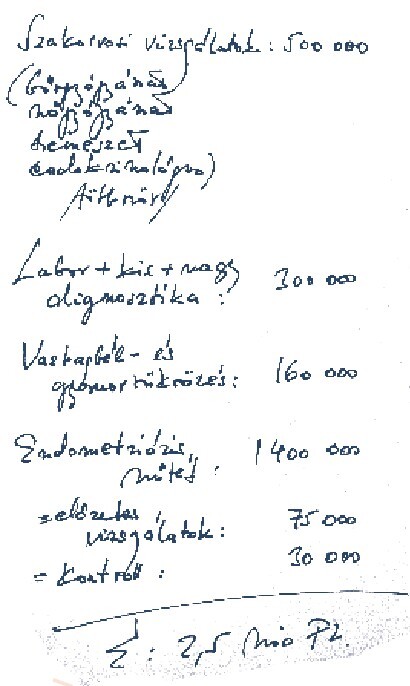 Szakorvosi vizsgálatok: 500 000
(bőrgyógyász
nőgyógyász
sebészet
endokrinológus)
Labor + kis + nagy
diagnosztika : 300 000
Vastagbél- és
gyomortükrözés: 160 000
Endometriózis 1 400 000
műtét :
- előzetes
vizsgálatok: 75 000
- Kontroll : 30 000
Σ : 2,5 Mio Ft.